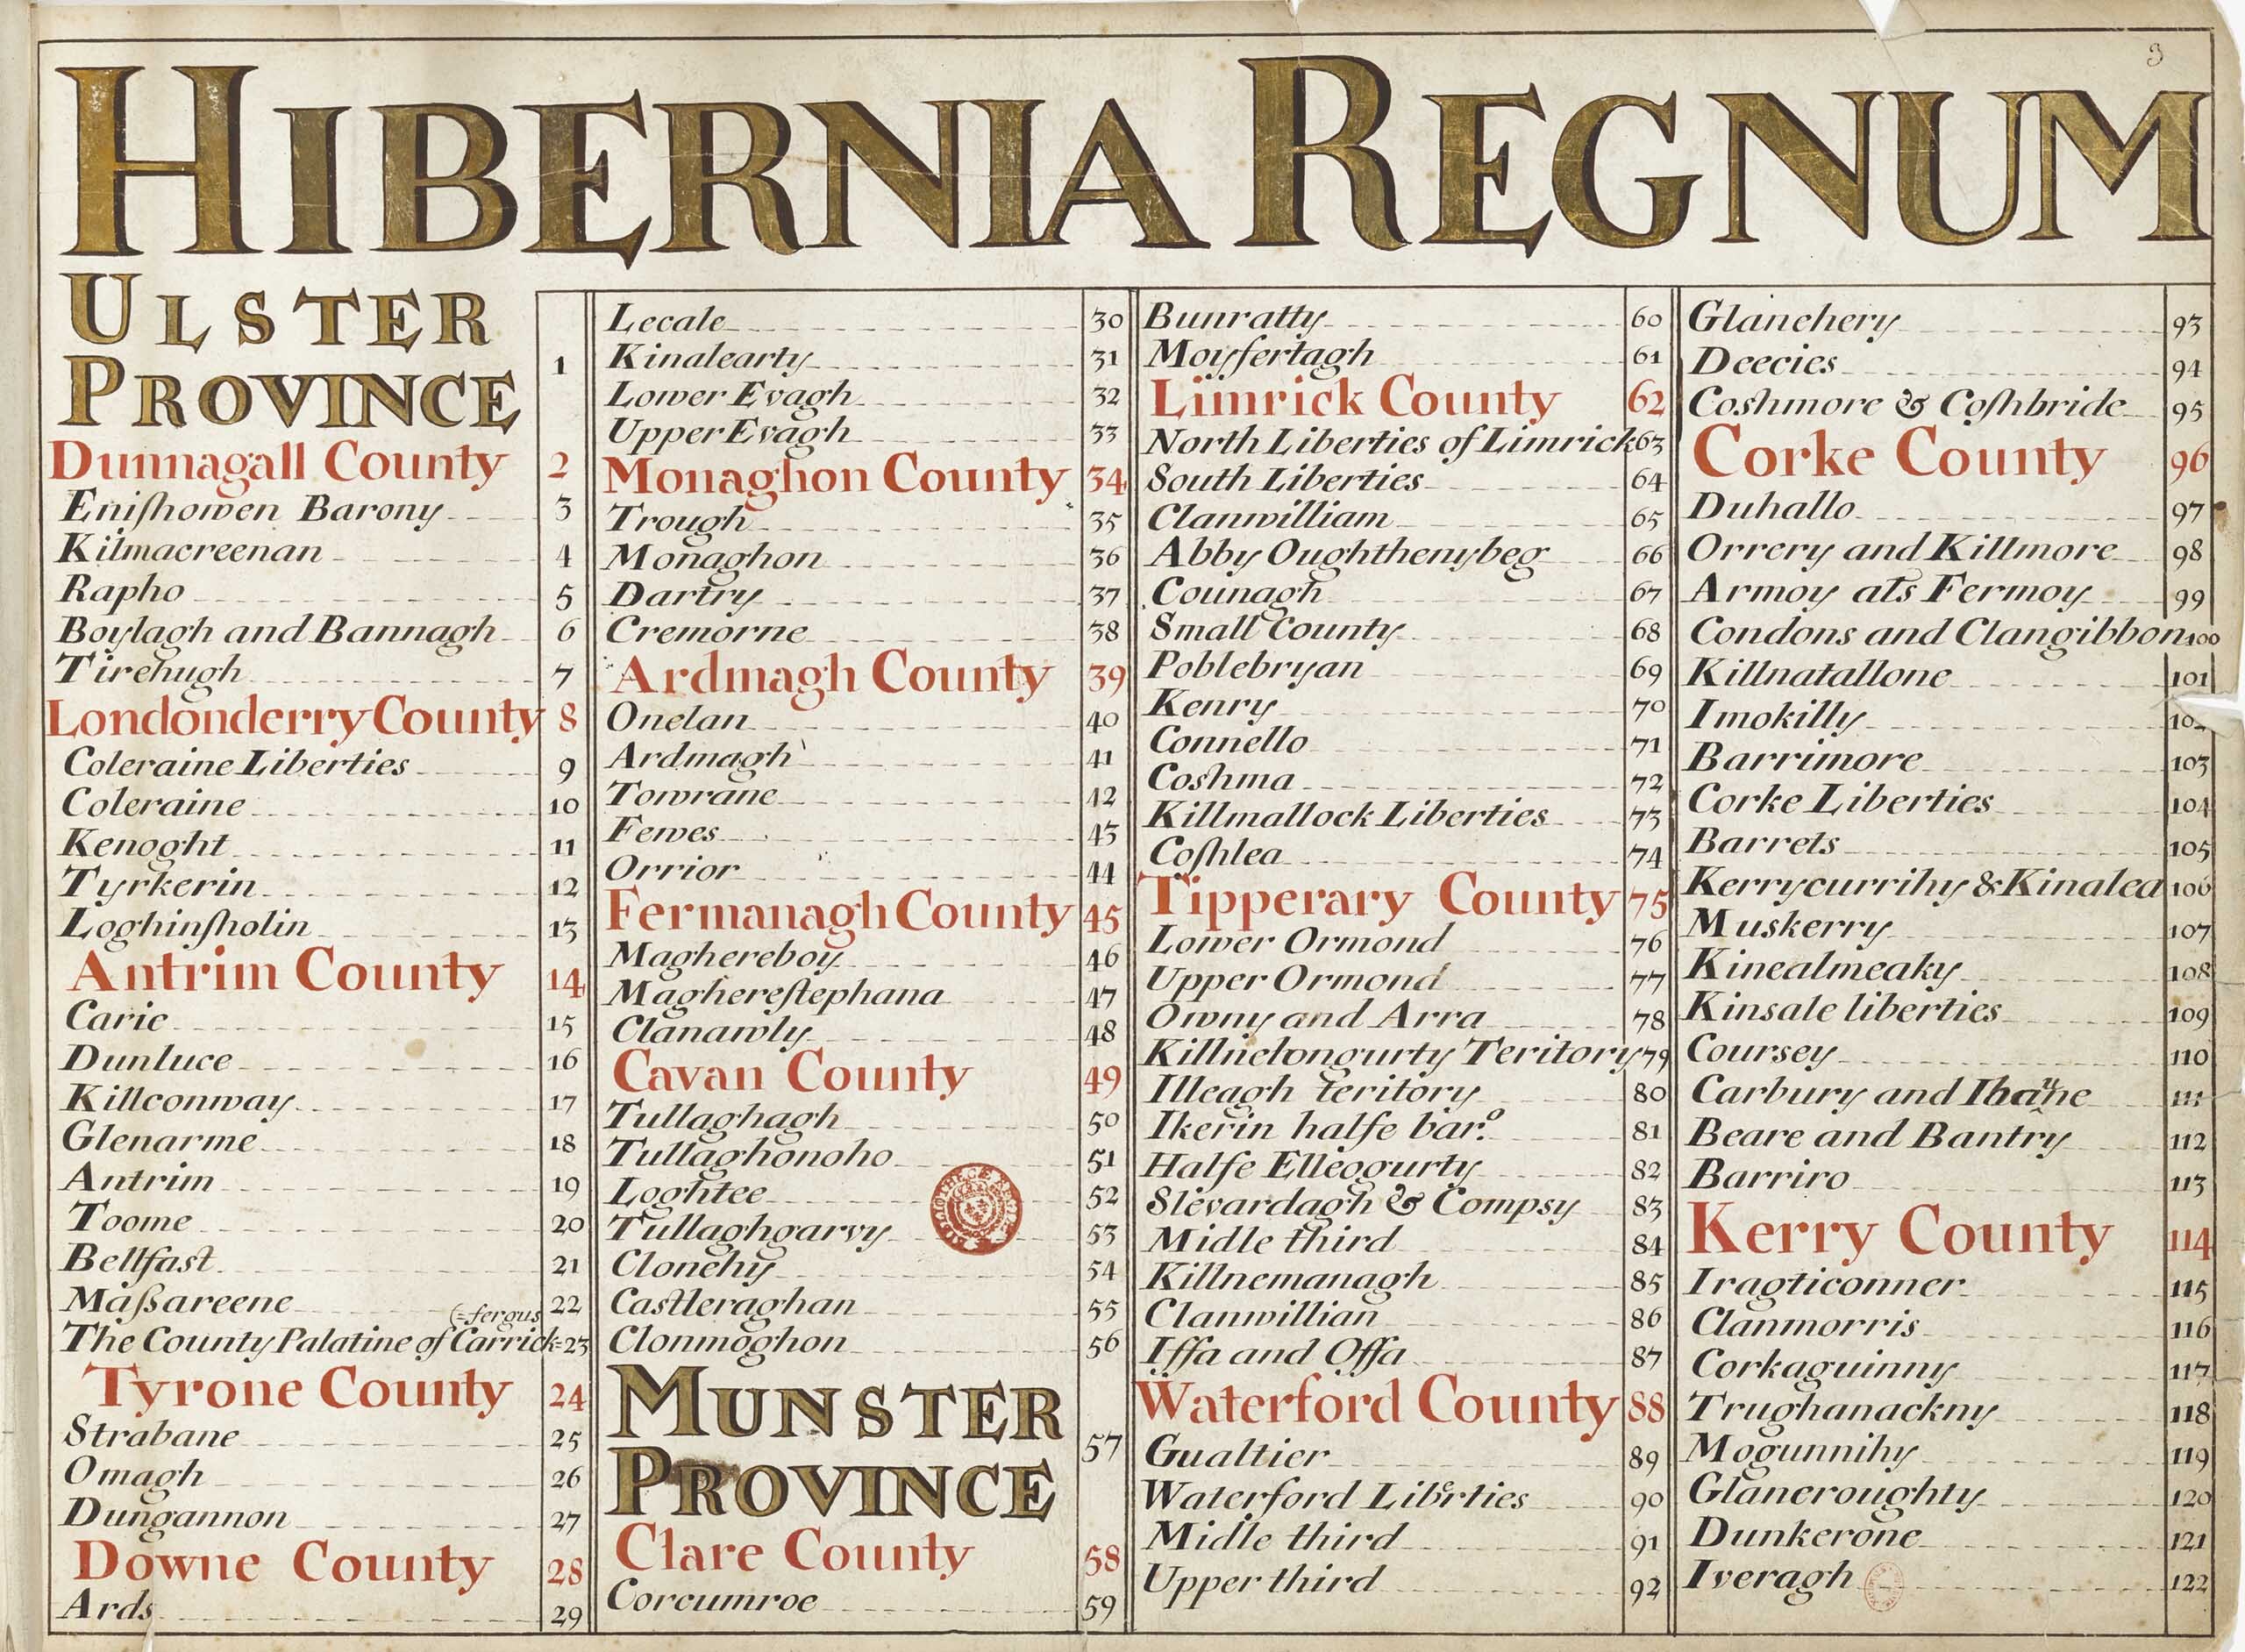 3
HIBERNIA REGNUM
ULSTER
PROVINCE 1
Dunnagall County 2
Enishowen Barony 3
Kilmacreenan 4
Rapho 5
Boylagh and Bannagh 6
Tirehugh 7
Londonderry County 8
Coleraine Liberties 9
Coleraine 10
Kenoght 11
Tyrkerin 12
Loghinsholin 13
Antrim County 14
Caric 15
Dunluce 16
Killconway 17
Glenarme 18
Antrim 19
Toome 20
Bellfast 21
Maßareene 22
(=fergus
The County Palatine of Carrick= 23
Tyrone County 24
Strabane 25
Omagh 26
Dungannon 27
Downe County 28
Ards 29
Lecale 30
Kinalearty 31
Lower Evagh 32
Upper Evagh 33
Monaghon County 34
Trough 35
Monaghon 36
Dartry 37
Cremorne 38
Ardmagh County 39
Onelan 40
Ardmagh 41
Towrane 42
Fewes 43
Orrior 44
Fermanagh County 45
Maghereboy 46
Magherestephana 47
Clanawly 48
Cavan County 49
Tullaghagh 50
Tullaghonoho 51
Loghtee 52
Tullaghgarvy 53
Clonchy 54
Castleraghan 55
Clonmoghon 56
MUNSTER
PROVINCE 57
Clare County 58
Corcumroe 59
Bunratty 60
Moyfertagh 61
Limrick County 62
North Liberties of Limrick 63
South Liberties 64
Clanwilliam 65
Abby Oughthenybeg 66
Counagh 67
Small County 68
Poblebryan 69
Kenry 70
Connello 71
Coshma 72
Killmallock Liberties 73
Coshlea 74
Tipperary County 75
Lower Ormond 76
Upper Ormond 77
Owny and Arra 78
Killnelongurty Teritory 79
Illeagh teritory 80
Ikerin halfe bar.º 81
Halfe Elleogurty 82
Slevardagh & Compsy 83
Midle third 84
Killnemanagh 85
Clanwillian 86
Iffa and Offa 87
Waterford County 88
Gualtier 89
Waterford Liberties 90
Midle third 91
Upper third 92
Glanehery 93
Deecies 94
Coshmore & Coshbride 95
Corke County 96
Duhallo 97
Orrery and Killmore 98
Armoy als Fermoy 99
Condons and Clangibbon 100
Killnatallone 101
Imokilly 102
Barrimore 103
Corke Liberties 104
Barrets 105
Kerrycurrihy & Kinalea 106
Muskerry 107
Kinealmeaky 108
Kinsale liberties 109
Coursey 110
Carbury and 111
Beare and Bantry 112
Barriro 113
Kerry County 114
Iragticonner 115
Clanmorris 116
Corkaguinny 117
Trughanackny 118
Mogunnihy 119
Glaneroughty 120
Dunkerone 121
Iveragh 122